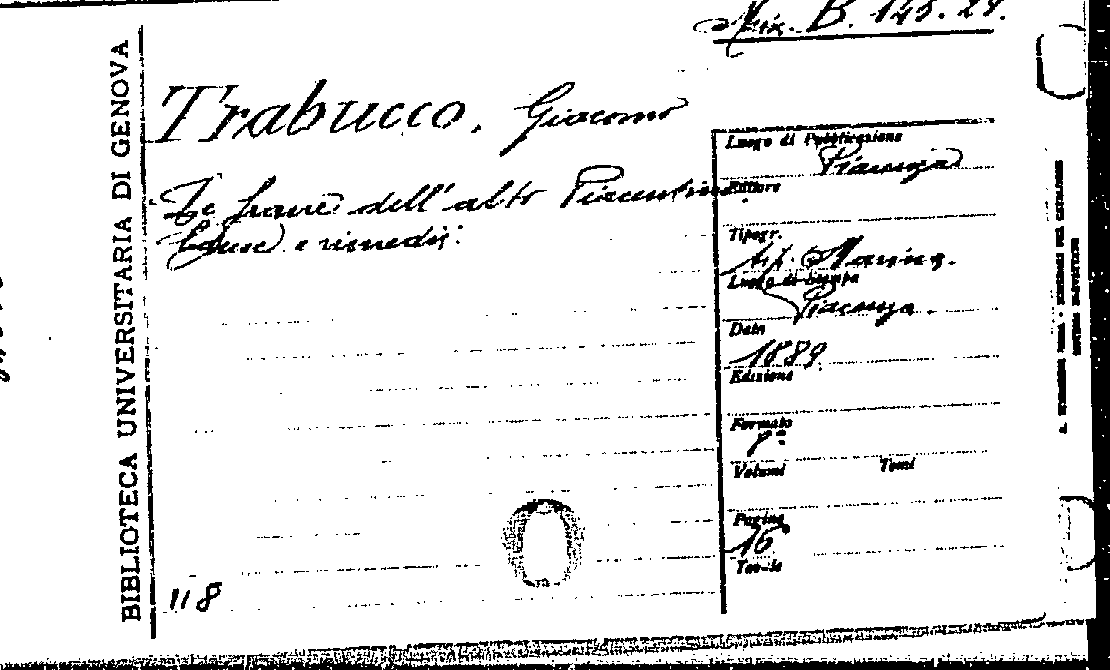 Misc. B. 145. 24.
BIBLIOTECA UNIVERSITARIA DI GENOVA
Trabucco, Giacomo
Le frane dell'alto Piacentino.
Cause e rimedi:
Luogo di Pubblicazione
Piacenza
Editore
Tipogr.
Tip. Marina.
Luogo di Stampa
Piacenza.
Data
1889
Edizione
Formato
8°:
Volumi Tomi
Pagine
16
Tavole
118